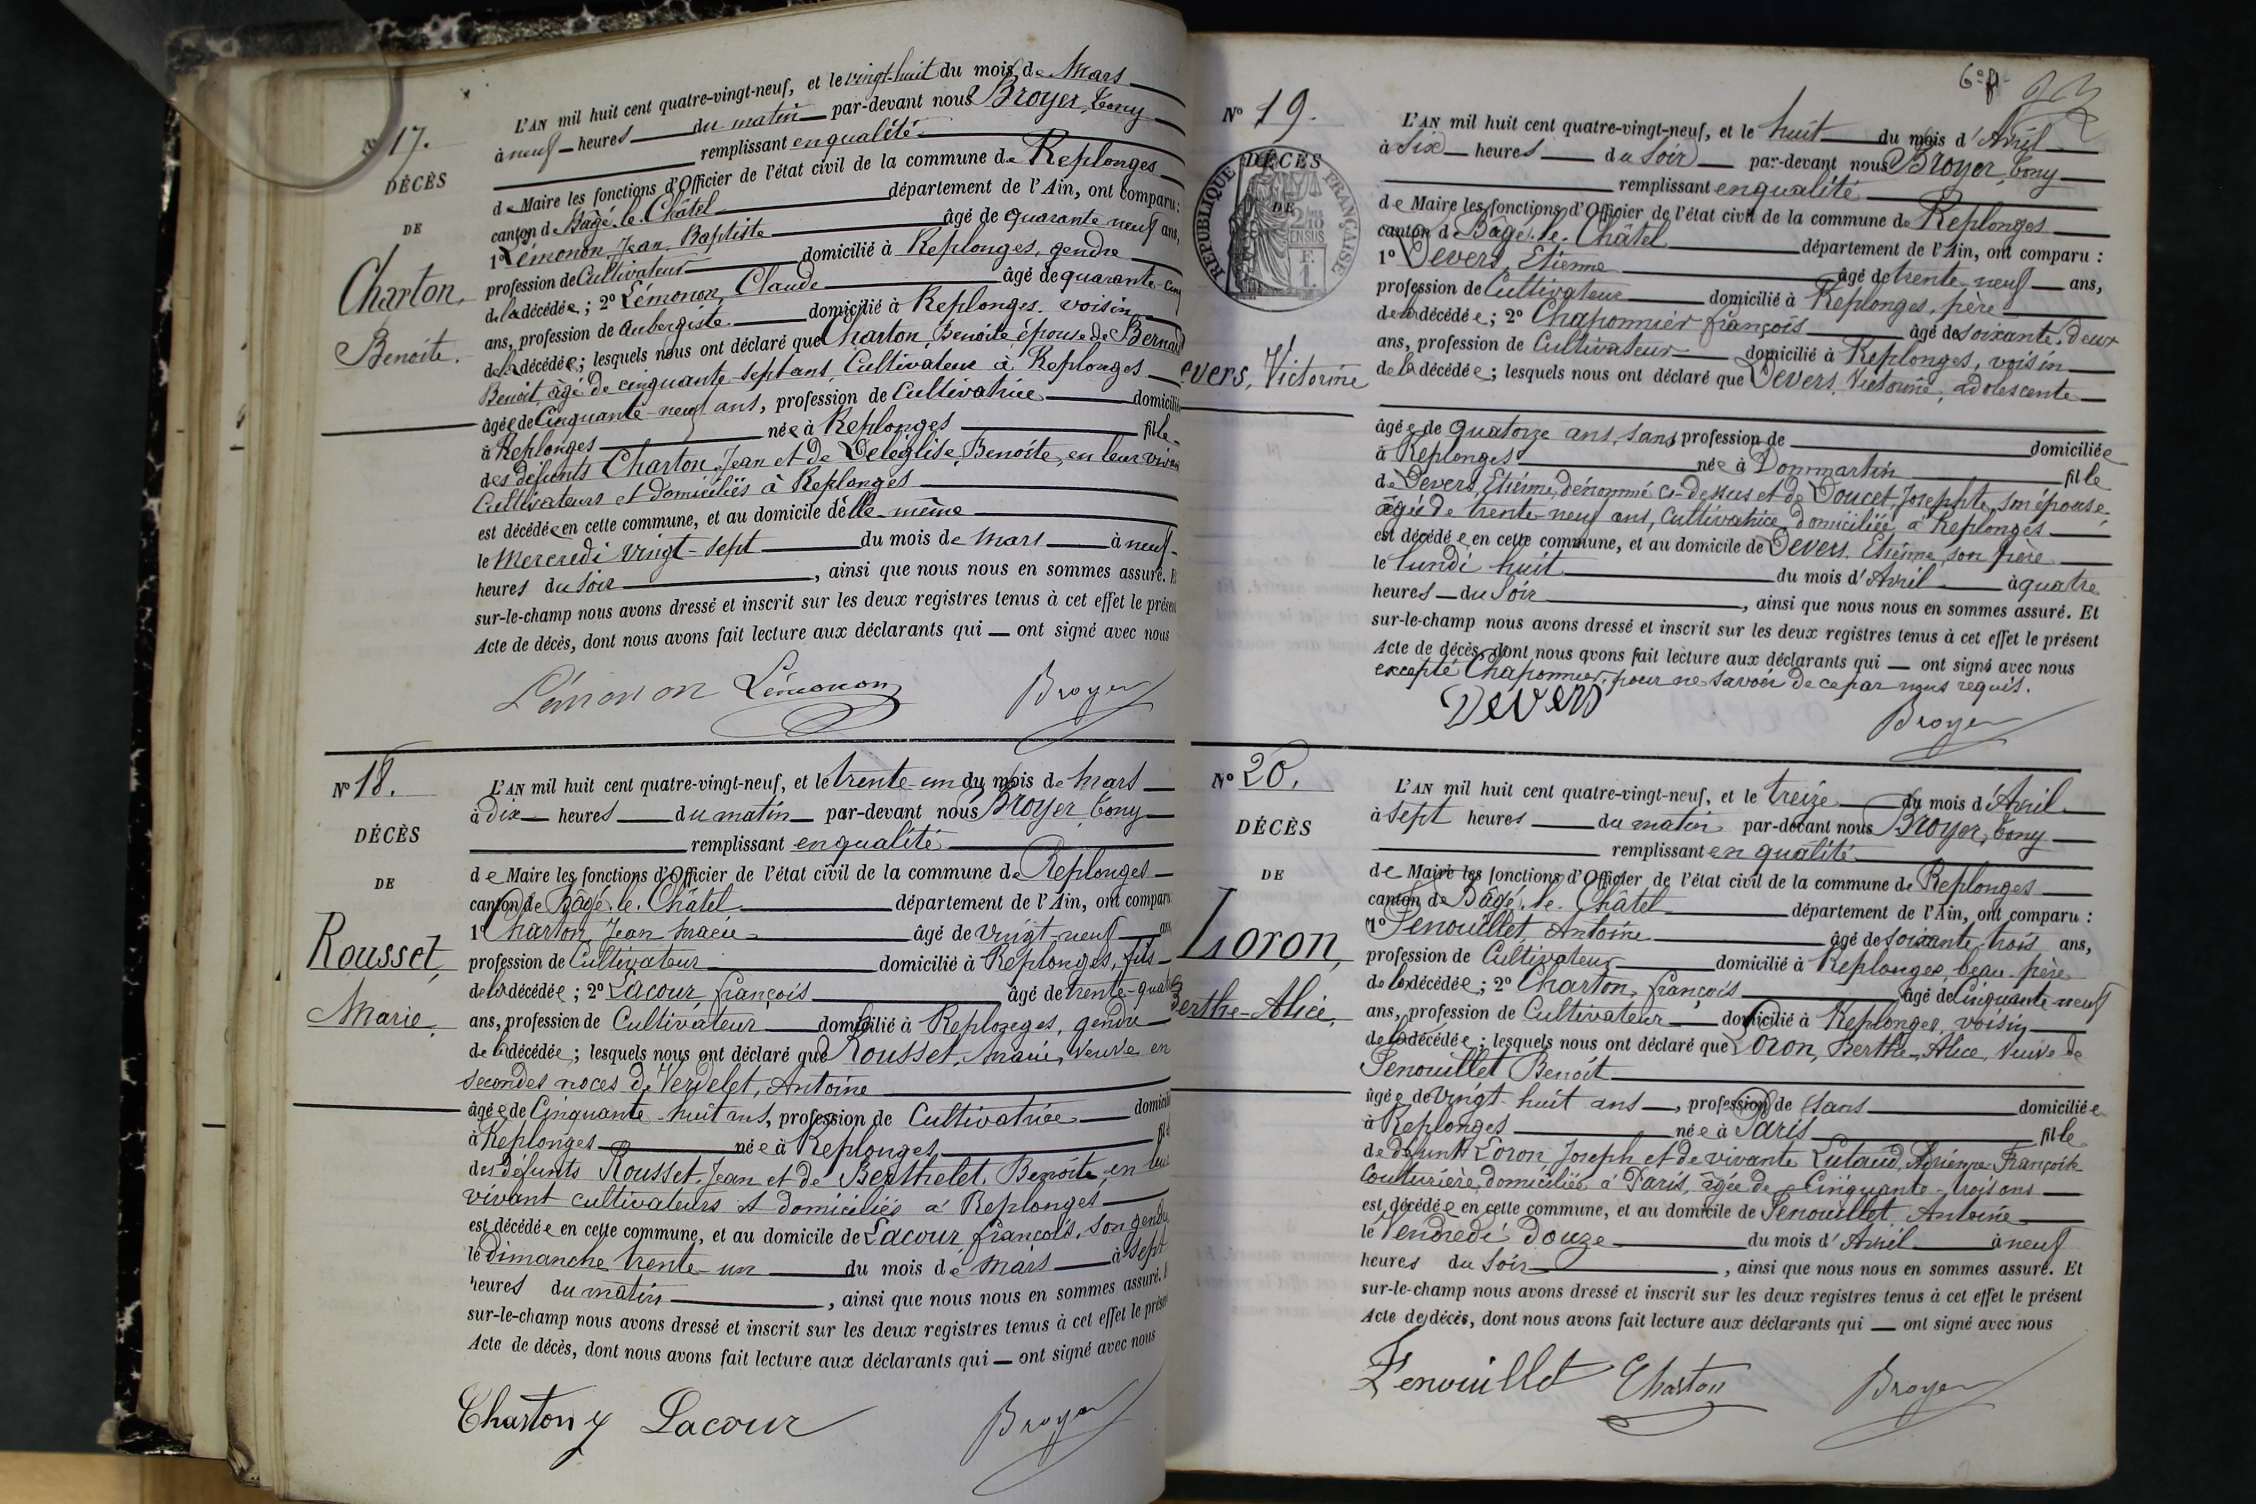 N° 17.
DÉCÈS
DE
Charton,
Benoite.
L'AN mil huit cent quatre-vingt-neuf, et le vingt-huit du mois de Mars
à neuf heures du matin par-devant nous Broyer, Tony
remplissant en qualité
de Maire les fonctions d'Officier de l'état civil de la commune de Replonges
canton de Bâgé-le-Châtel département de l'Ain, ont comparu :
1° Lémonon, Jean Baptiste âgé de quarante neuf ans,
profession de Cultivateur domicilié à Replonges, gendre
de la décédée ; 2° Lémonon, Claude âgé de quarante-cinq
ans, profession de Aubergiste domicilié à Replonges, voisin
de la décédée ; lesquels nous ont déclaré que Charton, Benoite épouse de Bernard
Benoit, âgé de cinquante-sept ans, Cultivateur à Replonges
âgée de Cinquante-neuf ans, profession de Cultivatrice domicilié
à Replonges née à Replonges fille
des défunts Charton, Jean et de Deléglise, Benoite, en leur vivant
Cultivateurs et domiciliés à Replonges
est décédée en cette commune, et au domicile d'elle-même
le Mercredi vingt-sept du mois de Mars à neuf
heures du soir, ainsi que nous nous en sommes assuré. E
sur-le-champ nous avons dressé et inscrit sur les deux registres tenus à cet effet le présen
Acte de décès, dont nous avons fait lecture aux déclarants qui — ont signé avec nous
Lémonon Lémonon Broyer
N° 18.
DÉCÈS
DE
Rousset,
Marie.
L'AN mil huit cent quatre-vingt-neuf, et le trente-un du mois de Mars
à dix heures du matin par-devant nous Broyer, Tony
remplissant en qualité
de Maire les fonctions d'Officier de l'état civil de la commune de Replonges
canton de Bâgé-le-Châtel département de l'Ain, ont comparu
1° Charton, Jean Marie âgé de vingt-neuf ans
profession de Cultivateur domicilié à Replonges, fils
de la décédée ; 2° Lacour, François âgé de trente-quatre
ans, profession de Cultivateur domicilié à Replonges, gendre
de la décédée ; lesquels nous ont déclaré que Rousset, Marie, Veuve en
secondes noces de Verdelet, Antoine
âgée de Cinquante-huit ans, profession de Cultivatrice domicili
à Replonges née à Replonges fil
des défunts Rousset, Jean et de Berthelet, Benoite, en leur
vivant cultivateurs et domiciliés à Replonges
est décédée en cette commune, et au domicile de Lacour, François, son gendre
le Dimanche trente-un du mois de Mars à Sept
heures du matin, ainsi que nous nous en sommes assuré. E
sur-le-champ nous avons dressé et inscrit sur les deux registres tenus à cet effet le présen
Acte de décès, dont nous avons fait lecture aux déclarants qui — ont signé avec nous
Charton Lacour Broyer
N° 19.
RÉPUBLIQUE FRANÇAISE
DÉCÈS
DE
evers, Victorine
L'AN mil huit cent quatre-vingt-neuf, et le huit du mois d'Avril
à Six heures du soir par-devant nous Broyer, Tony
remplissant en qualité
de Maire les fonctions d'Officier de l'état civil de la commune de Replonges
canton de Bâgé-le-Châtel département de l'Ain, ont comparu :
1° Devers, Etienne âgé de trente-neuf ans,
profession de Cultivateur domicilié à Replonges, père
de la décédée ; 2° Chaponnier François âgé de soixante-deux
ans, profession de Cultivateur domicilié à Replonges, voisin
de la décédée ; lesquels nous ont déclaré que Devers, Victorine, adolescente
âgée de quatorze ans, sans profession de domiciliée
à Replonges née à Dommartin fille
de Devers, Etienne, dénommé ci-dessus et de Doucet, Josephte, son épouse
âgée de trente-neuf ans, Cultivatrice, domiciliée à Replonges
est décédée en cette commune, et au domicile de Devers, Etienne, son père
le lundi huit du mois d'Avril à quatre
heures du soir, ainsi que nous nous en sommes assuré. Et
sur-le-champ nous avons dressé et inscrit sur les deux registres tenus à cet effet le présent
Acte de décès, dont nous avons fait lecture aux déclarants qui — ont signé avec nous
excepté Chaponnier, pour ne savoir de ce par nous requis.
Devers Broyer
N° 20.
DÉCÈS
DE
Loron,
Berthe-Alice.
L'AN mil huit cent quatre-vingt-neuf, et le treize du mois d'Avril
à Sept heures du matin par-devant nous Broyer, Tony
remplissant en qualité
de Maire les fonctions d'Officier de l'état civil de la commune de Replonges
canton de Bâgé-le-Châtel département de l'Ain, ont comparu :
1° Fenouillet, Antoine âgé de soixante-trois ans,
profession de Cultivateur domicilié à Replonges, beau-père
de la décédée ; 2° Charton, François âgé de Cinquante neuf
ans, profession de Cultivateur domicilié à Replonges, voisin
de la décédée ; lesquels nous ont déclaré que Loron, Berthe-Alice, Veuve de
Fenouillet Benoit
âgée de vingt-huit ans, profession de sans domiciliée
à Replonges née à Paris fille
de défunt Loron Joseph et de vivante Lutaud, Adrienne Françoise
Couturière, domiciliée à Paris, âgée de Cinquante-trois ans
est décédée en cette commune, et au domicile de Fenouillet, Antoine
le Vendredi Douze du mois d'Avril à neuf
heures du Soir, ainsi que nous nous en sommes assuré. Et
sur-le-champ nous avons dressé et inscrit sur les deux registres tenus à cet effet le présent
Acte de décès, dont nous avons fait lecture aux déclarants qui — ont signé avec nous
Fenouillet Charton Broyer